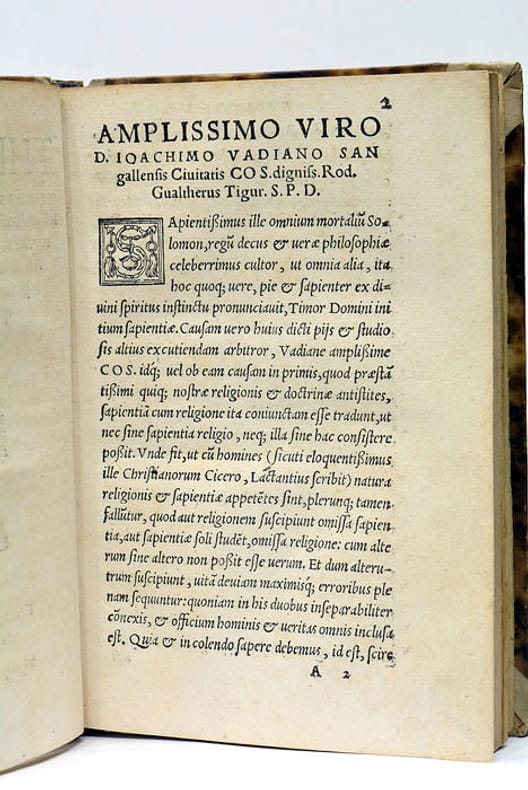 2
AMPLISSIMO VIRO
D. IOACHIMO VADIANO SAN
gallensis Ciuitatis COS. digniss. Rod.
Gualtherus Tigur. S. P. D.
SApientißimus ille omnium mortaliũ So-
lomon, regũ decus & ueræ philosophiæ
celeberrimus cultor, ut omnia alia, ita
hoc quoq; uere, pie & sapienter ex di=
uini spiritus instinctu pronunciauit, Timor Domini ini
tium sapientiæ. Causam uero huius dicti pijs & studio
sis altius excutiendam arbitror, Vadiane amplißime
COS. idq; uel ob eam causam in primis, quod præstã
tißimi quiq; nostræ religionis & doctrinæ antistites,
sapientiã cum religione ita coniunctam esse tradunt, ut
nec sine sapientia religio, neq; illa sine hac consistere
poßit. Vnde fit, ut cũ homines (sicuti eloquentißimus
ille Christianorum Cicero, Lactantius scribit) natura
religionis & sapientiæ appetẽtes sint, plerunq; tamen
fallũtur, quod aut religionem suscipiunt omissa sapien
tia, aut sapientiæ soli studẽt, omissa religione: cum alte
rum sine altero non poßit esse uerum. Et dum alteru-
trum suscipiunt, uitã deuiam maximisq; erroribus ple
nam sequuntur: quoniam in his duobus inseparabiliter
cõnexis, & officium hominis & ueritas omnis inclusa
est. Quia & in colendo sapere debemus, id est, scire
A 2